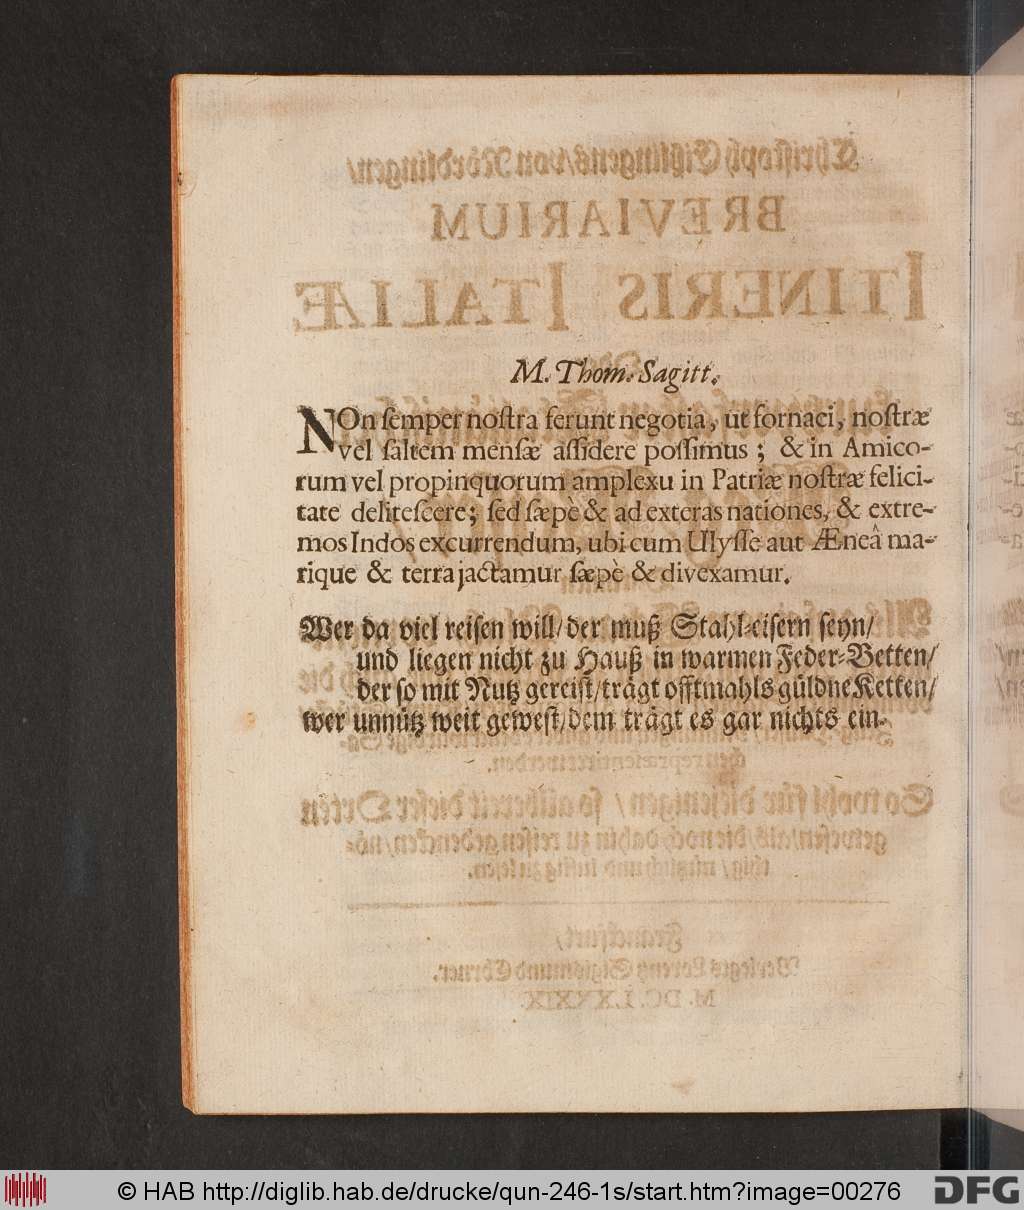 M. Thom. Sagitt.
NOn ſemper noſtra ferunt negotia, ut fornaci, noſtræ
vel ſaltem menſæ aſſidere poſſimus; & in Amico-
rum vel propinquorum amplexu in Patriæ noſtræ felici-
tate deliteſcere; ſed ſæpè & ad exteras nationes, & extre-
mos Indos excurrendum, ubi cum Ulyſſe aut Æneâ ma-
rique & terra jactamur ſæpè & divexamur.
Wer da viel reiſen will/ der muß Stahl-eiſern ſeyn/
und liegen nicht zu Hauß in warmen Feder-Betten/
der ſo mit Nutz gereiſt/ trägt offtmahls güldne Ketten/
wer unnütz weit geweſt/ dem trägt es gar nichts ein.
© HAB http://diglib.hab.de/drucke/qun-246-1s/start.htm?image=00276
DFG